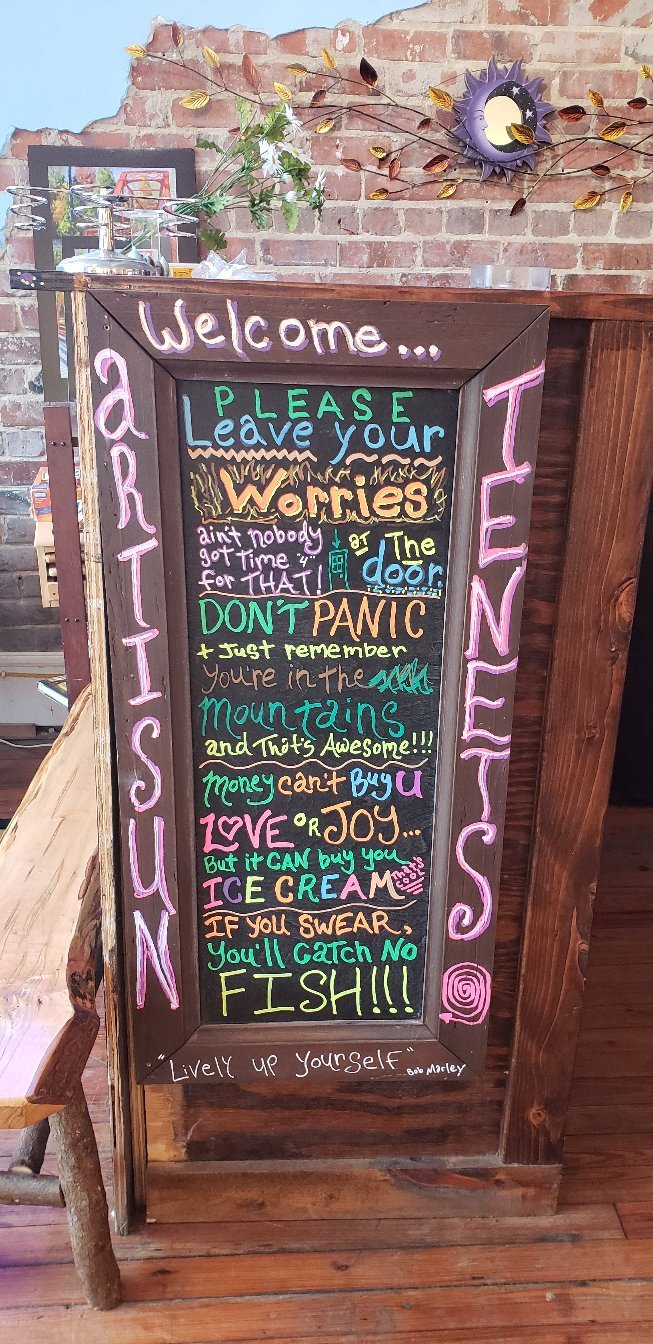 Welcome...
ARTISUN
TENETS
PLEASE
Leave your
Worries
ain't nobody
got Time "4"
for THAT!
AT The
door.
DON'T PANIC
+ Just remember
you're in the
Mountains
and That's Awesome!!!
Money can't Buy U
LOVE OR JOY...
But it CAN buy you
ICE CREAM
THAT'S COOL
IF you SWEAR,
You'll Catch No
FISH!!!
"Lively up yourself"
Bob Marley